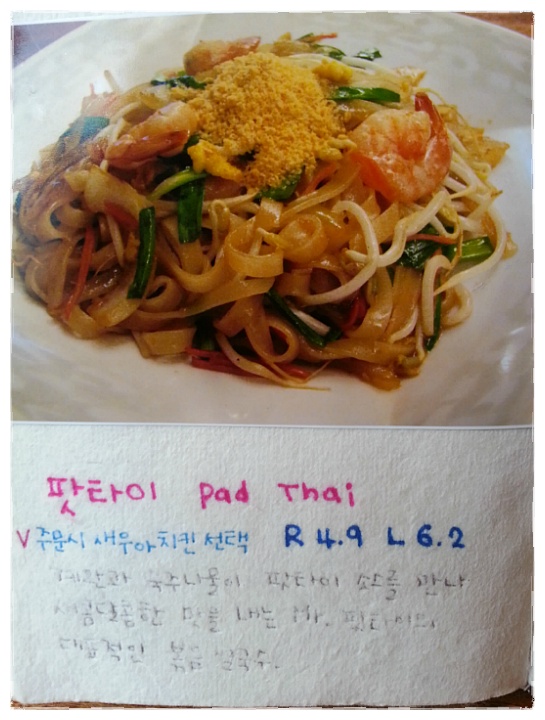 팟타이 Pad Thai
V 주문시 새우아치킨 선택 R 4.9 L 6.2
계란과 숙주나물이 팟타이 소스를 만나
새콤달콤한 맛을 내는
대표적인 볶음 쌀국수.